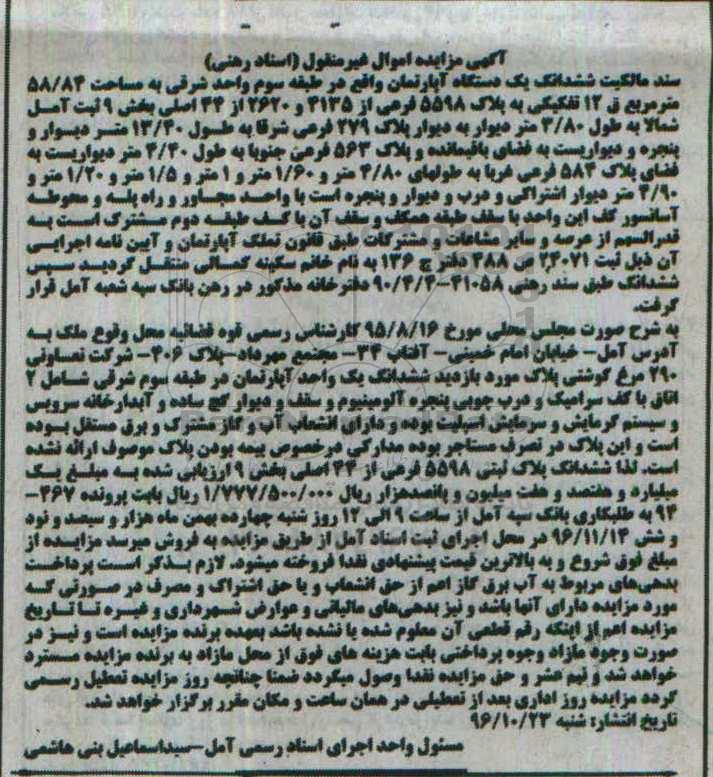 آگهی مزایده اموال غیرمنقول (اسناد رهنی)
سند مالکیت ششدانگ یک دستگاه آپارتمان واقع در طبقه سوم واحد شرقی به مساحت ۵۸/۸۴
مترمربع ق ۱۲ تفکیکی به پلاک ۵۵۹۸ فرعی از ۴۱۳۵ و ۲۶۲۰ از ۴۴ اصلی بخش ۹ ثبت آمل
شمالا به طول ۳/۸۰ متر دیوار به دیوار پلاک ۲۷۹ فرعی شرقا به طول ۱۳/۴۰ متر دیوار و
پنجره و دیواریست به فضای باقیمانده و پلاک ۵۶۳ فرعی جنوبا به طول ۴/۴۰ متر دیواریست به
فضای پلاک ۵۸۴ فرعی غربا به طولهای ۴/۸۰ متر و ۱/۶۰ متر و ۱ متر و ۱/۵ متر و ۱/۲۰ متر و
۴/۹۰ متر دیوار اشتراکی و درب و دیوار و پنجره است با واحد مجاور و راه پله و محوطه
آسانسور کف این واحد با سقف طبقه همکف و سقف آن با کف طبقه دوم مشترک است به
قدرالسهم از عرصه و سایر مشاعات و مشترکات طبق قانون تملک آپارتمان و آیین نامه اجرایی
آن ذیل ثبت ۲۴۰۷۱ ص ۳۸۸ دفتر ج ۱۳۶ به نام خانم سکینه کمسائی منتقل گردید سپس
ششدانگ طبق سند رهنی ۴۱۰۵۸-۹۰/۴/۴ دفترخانه مذکور در رهن بانک سپه شعبه آمل قرار
گرفت.
به شرح صورت مجلس محلی مورخ ۹۵/۸/۱۶ کارشناس رسمی قوه قضائیه محل وقوع ملک به
آدرس آمل- خیابان امام خمینی- آفتاب ۳۴- مجتمع مهرداد-پلاک ۴۰۶- شرکت تعاونی
۲۹۰ مرغ گوشتی پلاک مورد بازدید ششدانگ یک واحد آپارتمان در طبقه سوم شرقی شامل ۲
اتاق با کف سرامیک و درب چوبی پنجره آلومینیوم و سقف و دیوار گچ ساده و آبدارخانه سرویس
و سیستم گرمایش و سرمایش اسپلیت بوده و دارای انشعاب آب و گاز مشترک و برق مستقل بوده
است و این پلاک در تصرف مستاجر بوده مدارکی درخصوص بیمه بودن پلاک موصوف ارائه نشده
است. لذا ششدانگ پلاک ثبتی ۵۵۹۸ فرعی از ۴۴ اصلی بخش ۹ ارزیابی شده به مبلغ یک
میلیارد و هفتصد و هفت میلیون و پانصدهزار ریال ۱/۷۷۷/۵۰۰/۰۰۰ ریال بابت پرونده ۴۶۷-
۹۴ به طلبکاری بانک سپه آمل از ساعت ۹ الی ۱۲ روز شنبه چهارده بهمن ماه هزار و سیصد و نود
و شش ۹۶/۱۱/۱۴ در محل اجرای ثبت اسناد آمل از طریق مزایده به فروش میرسد مزایده از
مبلغ فوق شروع و به بالاترین قیمت پیشنهادی نقدا فروخته میشود. لازم بذکر است پرداخت
بدهی‌های مربوط به آب برق گاز اعم از حق انشعاب و یا حق اشتراک و مصرف در صورتی که
مورد مزایده دارای آنها باشد و نیز بدهی‌های مالیاتی و عوارض شهرداری و غیره تا تاریخ
مزایده اعم از اینکه رقم قطعی آن معلوم شده یا نشده باشد بعهده برنده مزایده است و نیز در
صورت وجود مازاد وجوه پرداختی بابت هزینه های فوق از محل مازاد به برنده مزایده مسترد
خواهد شد و نیم عشر و حق مزایده نقدا وصول میگردد ضمنا چنانچه روز مزایده تعطیل رسمی
گردد مزایده روز اداری بعد از تعطیلی در همان ساعت و مکان مقرر برگزار خواهد شد.
تاریخ انتشار: شنبه ۹۶/۱۰/۲۳
مسئول واحد اجرای اسناد رسمی آمل-سیداسماعیل بنی هاشمی